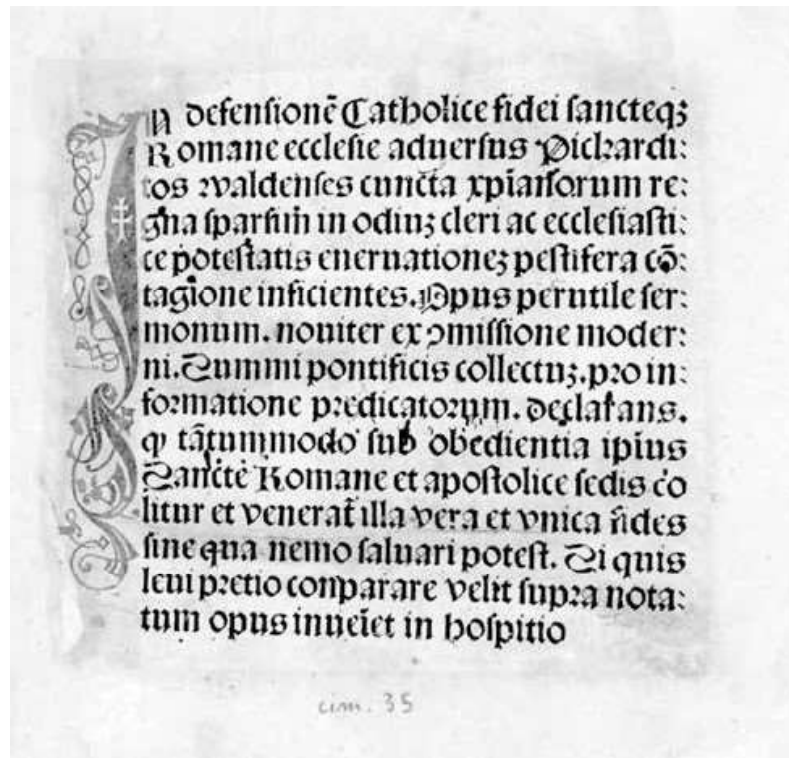 In defensionē Catholice fidei sancteqꝫ
Romane ecclesie aduersus Pickardi:
tos ꝛwaldenses cuncta xp̄iarsorum re:
gna sparsim in odiuꝫ cleri ac ecclesiasti:
ce potestatis eneruationeꝫ pestifera cō:
tagione inficientes. Opus perutile ser:
monum. nouiter ex ꝓmissione moder:
ni. Summi pontificis collectuꝫ. pro in:
formatione predicatorum. declarans.
ꝙ tātummodo sub obedientia ipius
Sancte Romane et apostolice sedis co
litur et venerat̄ illa vera et vnica fides
sine qua nemo saluari potest. Si quis
leui pretio conparare velit supra nota:
tum opus inueiet in hospitio
cim. 35